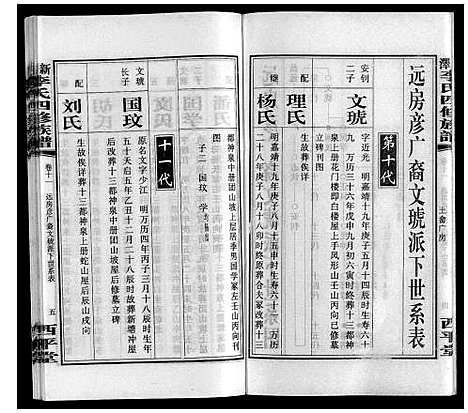 远房彦广裔文琥派下世系表
第十代
安钊
二子
文琥
字近光
明嘉靖十九年庚子五月十四日
生寿六十
九
万历三十六年戊申九月初六寅时终葬十三都神泉
上册花门楼即白楼屋上手凤形山壬山丙向已修墓
立碑刊图
配
理氏
生故俟详
杨氏
明嘉靖十九年庚子八月十五申时生寿六十一
万历
二十八年庚子八月十八卯时终原葬合夫冢改葬十三
都神泉中册团山坡上屋居季男国学冢左壬山丙向刊
图
子二
国玟
学
十一代
文琥
长子
国玟
原名文字少江
明万历四年丙子三月十八辰时生年
五十天启五年乙丑十二月二十八辰时故葬新塘冲屋
后改葬十三都神泉中册团山坡屋后修墓立碑
配
刘氏
生故俟详葬十三都神泉上册蛇山屋后辰山戌向
李氏四修族谱
卷十
远房彦广裔文琥派下世系表
五
西平堂